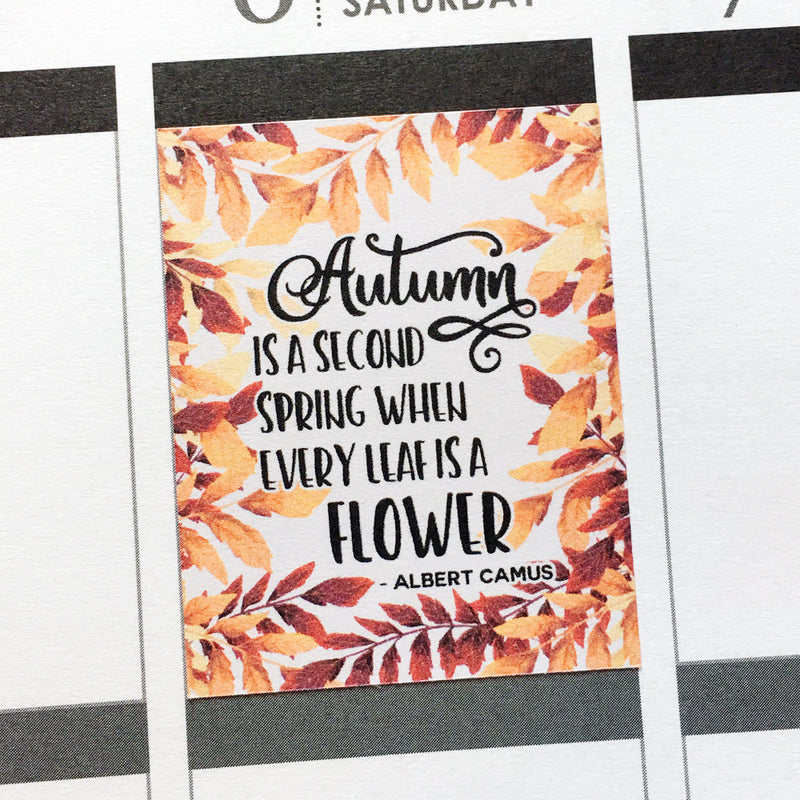 SATURDAY
Autumn
IS A SECOND
SPRING WHEN
EVERY LEAF IS A
FLOWER
- ALBERT CAMUS